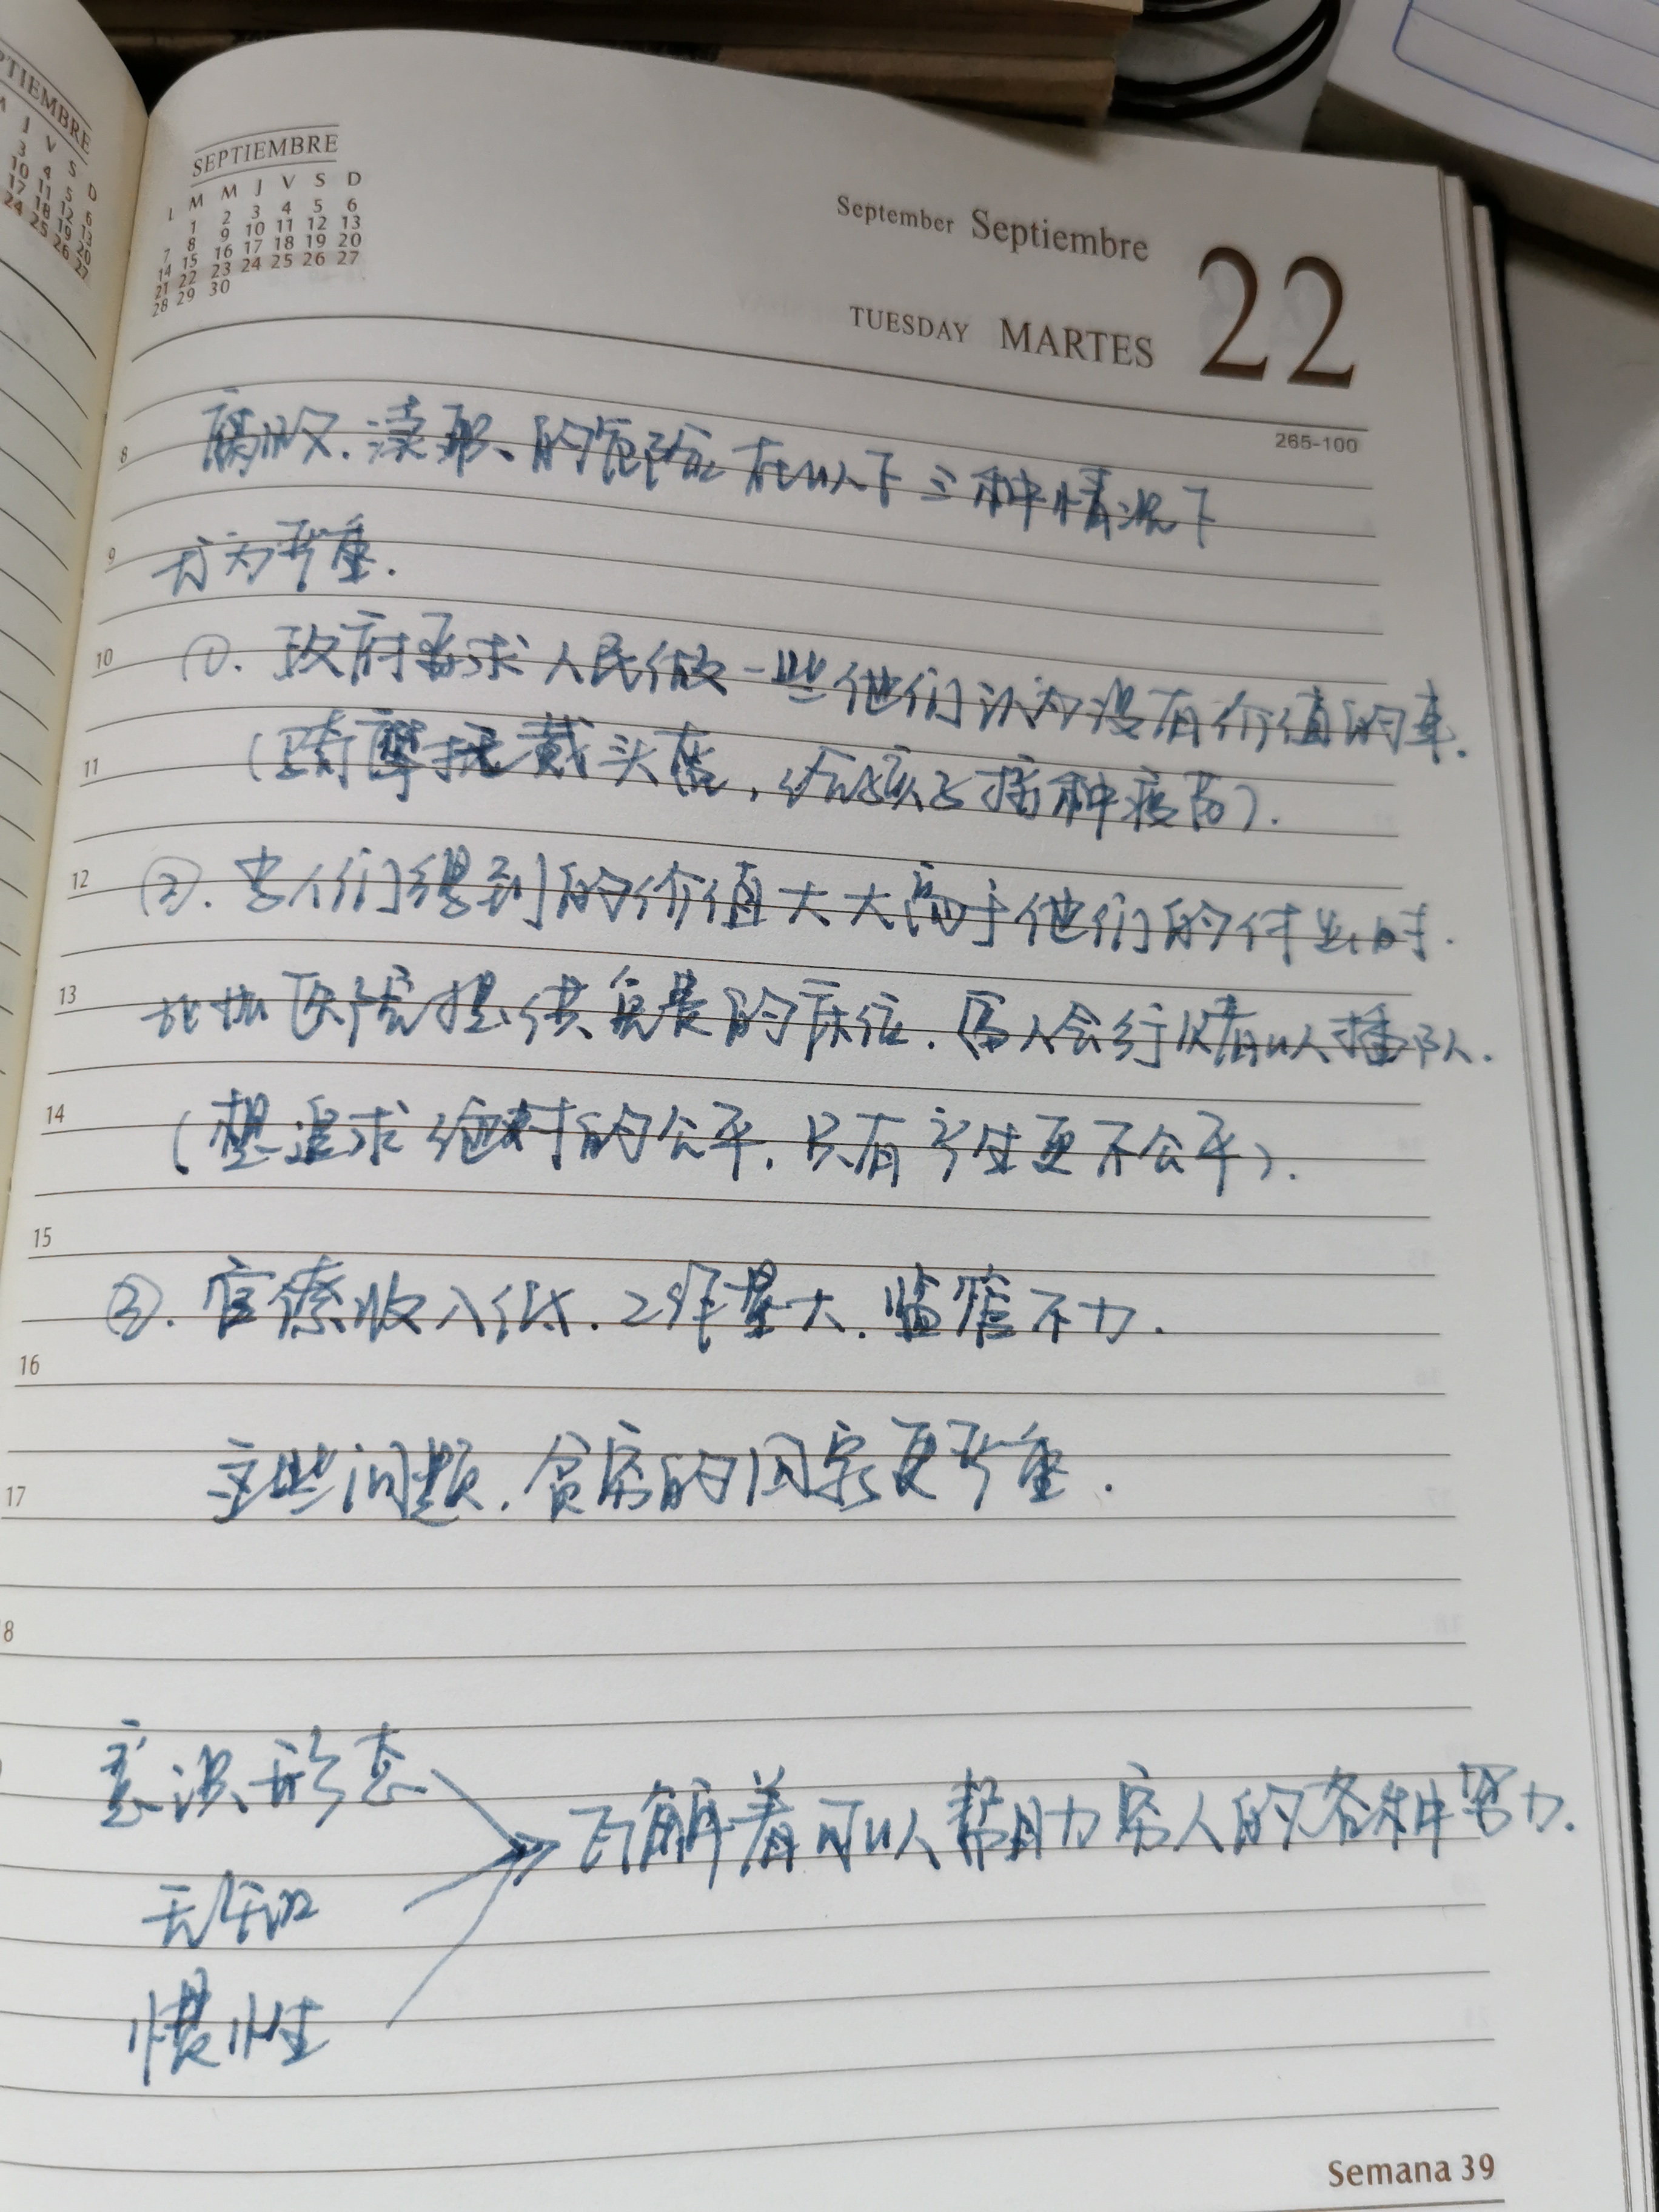 PTIEMBRE
J V S D
3 4 5 6
10 11 12 13
17 18 19 20
24 25 26 27
SEPTIEMBRE
L M M J V S D
1 2 3 4 5 6
7 8 9 10 11 12 13
14 15 16 17 18 19 20
21 22 23 24 25 26 27
28 29 30
September Septiembre
TUESDAY MARTES 22
265-100
8 腐败、渎职、的危险在以下三种情况下
9 尤为严重.
10 ①. 政府要求人民做一些他们认为没有价值的事.
11 (骑摩托戴头盔, 给孩子接种疫苗).
12 ②. 当人们得到的价值大大高于他们的付出时.
13 比如医院提供免费的床位. 富人会行贿以插队.
14 (想追求绝对的公平, 只有产生更不公平).
15
③. 官僚收入低. 工作量大. 监管不力.
16
这些问题, 贫穷的国家更严重.
17
18
意识形态
瓦解着可以帮助穷人的各种努力.
无知
惯性
Semana 39